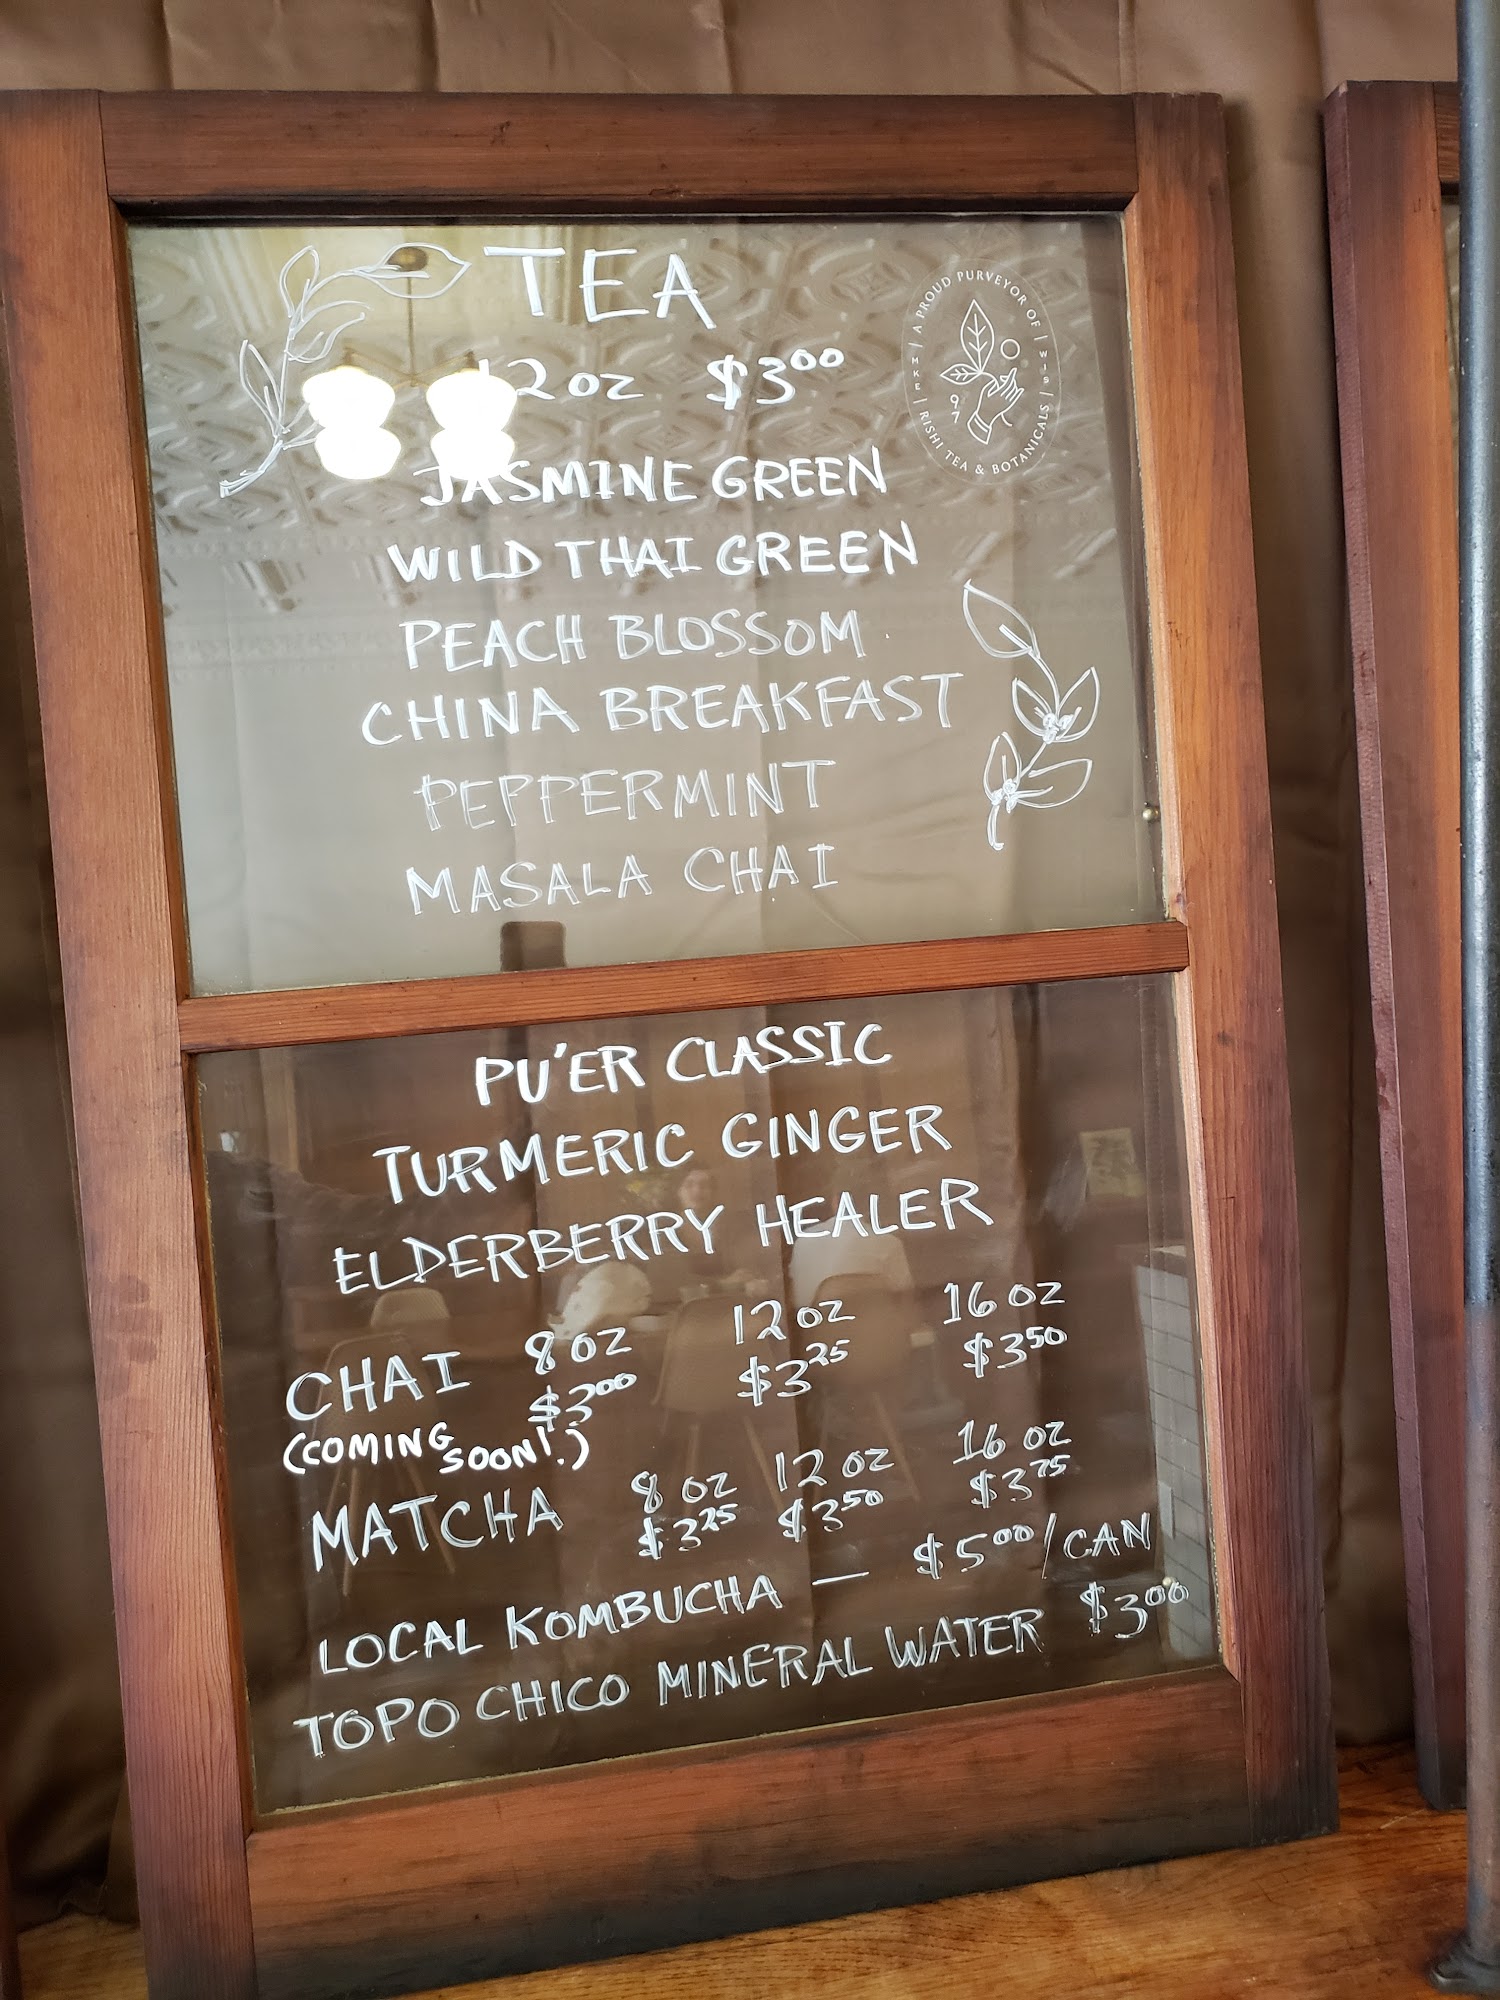 TEA
12 oz $3.00
A PROUD PURVEYOR OF
MKE
WIS
97
RISHI TEA & BOTANICALS
JASMINE GREEN
WILD THAI GREEN
PEACH BLOSSOM
CHINA BREAKFAST
PEPPERMINT
MASALA CHAI
PU'ER CLASSIC
TURMERIC GINGER
ELDERBERRY HEALER
CHAI 8 oz 12 oz 16 oz
$3.00 $3.25 $3.50
(COMING SOON!.)
MATCHA 8 oz 12 oz 16 oz
$3.25 $3.50 $3.75
LOCAL KOMBUCHA — $5.00/CAN
TOPO CHICO MINERAL WATER $3.00